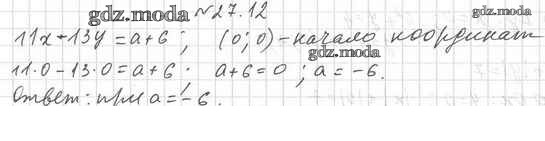 gdz.moda №27.12 gdz.moda
11x+13y=a+6; (0;0)-начало координат
gdz.moda
11·0-13·0=a+6; a+6=0; a=-6.
gdz.moda
Ответ: при a=-6.